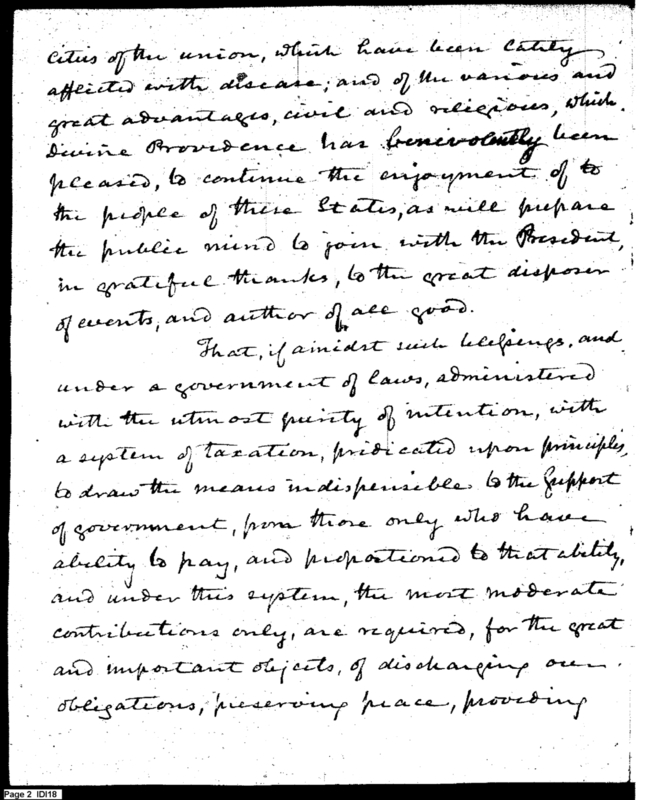 cities of the union, which have been lately
afflicted with disease; and of the various and
great advantages, civil and religious, which
divine Providence has benevolently been
pleased, to continue the enjoyment of to
the people of these States, as will prepare
the public mind to join with the President,
in grateful thanks, to the great disposer
of events, and author of all good.
That, if amidst such blessings, and
under a government of laws, administered
with the utmost purity of intention, with
a system of taxation, pridicated upon principles,
to draw the means indispensible to the Support
of government, from those only who have
ability to pay, and proportioned to that ability,
and under this system, the most moderate
contributions only, are required, for the great
and important objects, of discharging our
obligations, preserving peace, providing
Page 2 IDI18